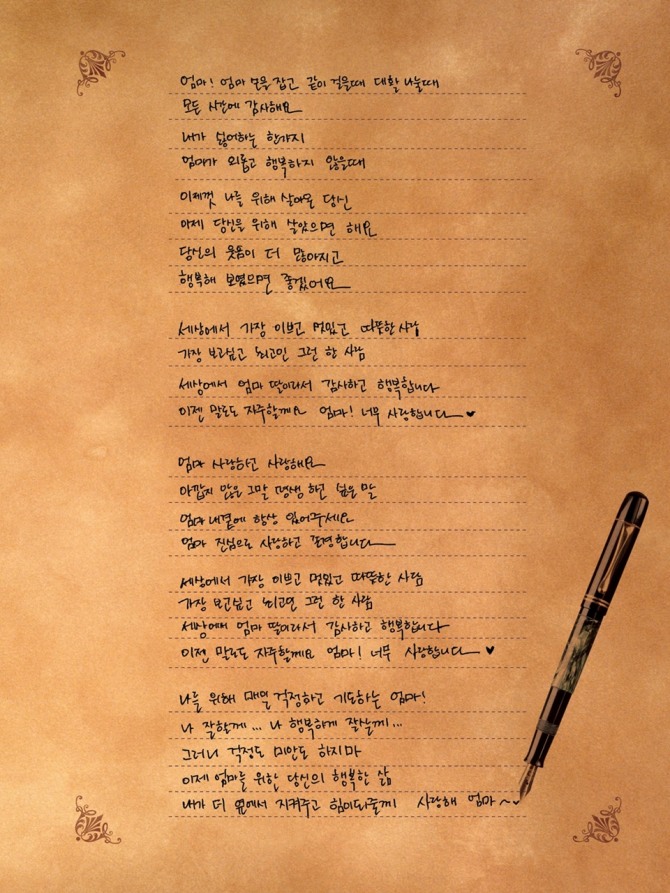 엄마! 엄마 손을 잡고 같이 걸을때 대활 나눌때
모든 시간에 감사해요
내가 싫어하는 한가지
엄마가 외롭고 행복하지 않을때
이제껏 나를 위해 살아온 당신
이제 당신을 위해 살았으면 해요
당신의 웃음이 더 많아지고
행복해 보였으면 좋겠어요
세상에서 가장 이쁘고 멋있고 따뜻한 사람
가장 보고싶고 그런 한 사람
세상에서 엄마 딸이라서 감사하고 행복합니다
이젠 말로도 자주할게요 엄마! 너무 사랑합니다
엄마 사랑하고 사랑해요
아깝지 않을 그말 평생 하고 싶은 말
엄마 내곁에 항상 있어주세요
엄마 진심으로 사랑하고 존경합니다
세상에서 가장 이쁘고 멋있고 따뜻한 사람
가장 보고싶고 그런 한 사람
세상에서 엄마 딸이라서 감사하고 행복합니다
이젠 말로도 자주할게요 엄마! 너무 사랑합니다
나를 위해 매일 걱정하고 기도하는 엄마!
나 잘할게... 나 행복하게 잘살게...
그러니 걱정도 미안도 하지마
이제 엄마를 위한 당신의 행복한 삶
내가 더 옆에서 지켜주고 힘이되줄게 사랑해 엄마~